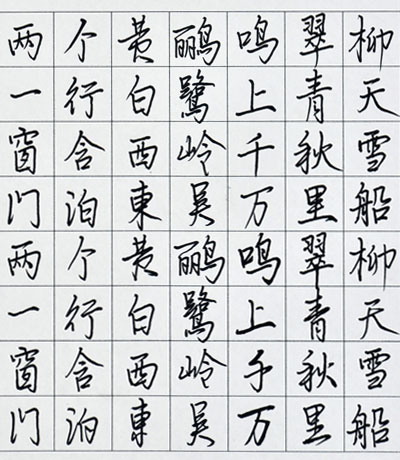 两个黄鹂鸣翠柳
一行白鹭上青天
窗含西岭千秋雪
门泊東吴万里船
两个黄鹂鸣翠柳
一行白鹭上青天
窗含西岭千秋雪
门泊東吴万里船